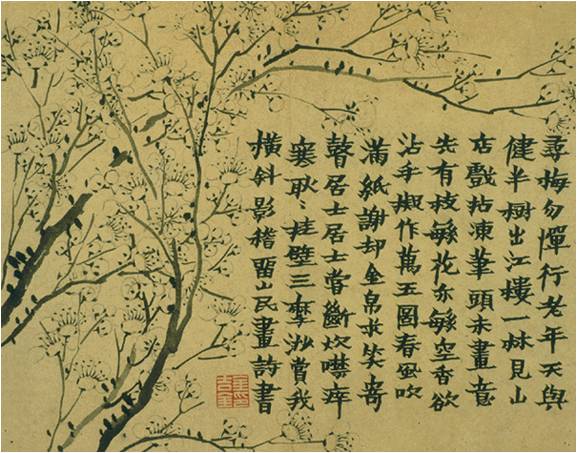 尋梅勿憚行老年天與
健半樹出江樓一林見山
店戲拈凍筆頭未畫意
先有枝緐花亦緐空香欲
沾手作萬玉圖春風吹
滿紙謝却金帛求笑寄
瞽居士居士嘗斷炊噤
耿〻挂壁三摩沙賞我
橫斜影稽留山民畫詩書